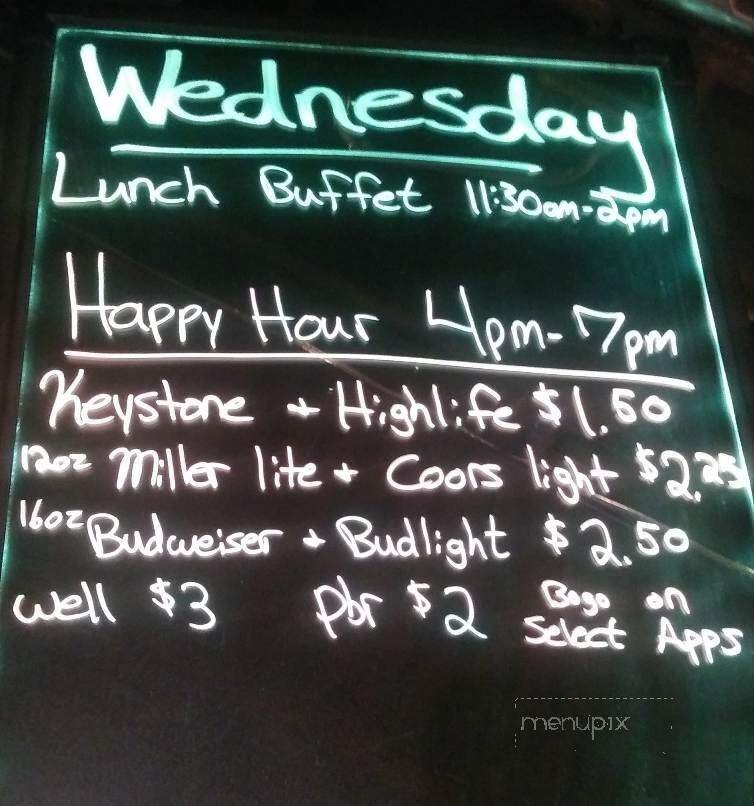 Wednesday
Lunch Buffet 11:30am-2pm
Happy Hour 4pm-7pm
Keystone + Highlife $1.50
12oz Miller lite + Coors light $2.25
16oz Budweiser + Budlight $2.50
well $3 pbr $2 Bogo on
Select Apps
menupix